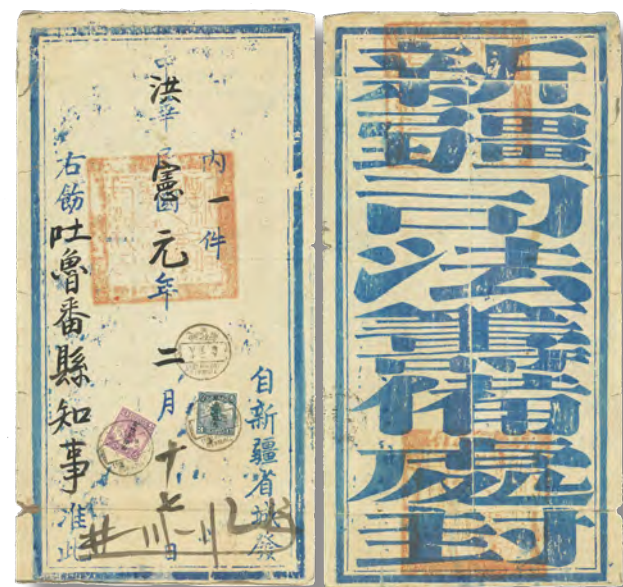 新疆司法籌備處封
自新疆省城發
內一件
洪憲元年二月十七日
右飭吐魯番縣知事准此